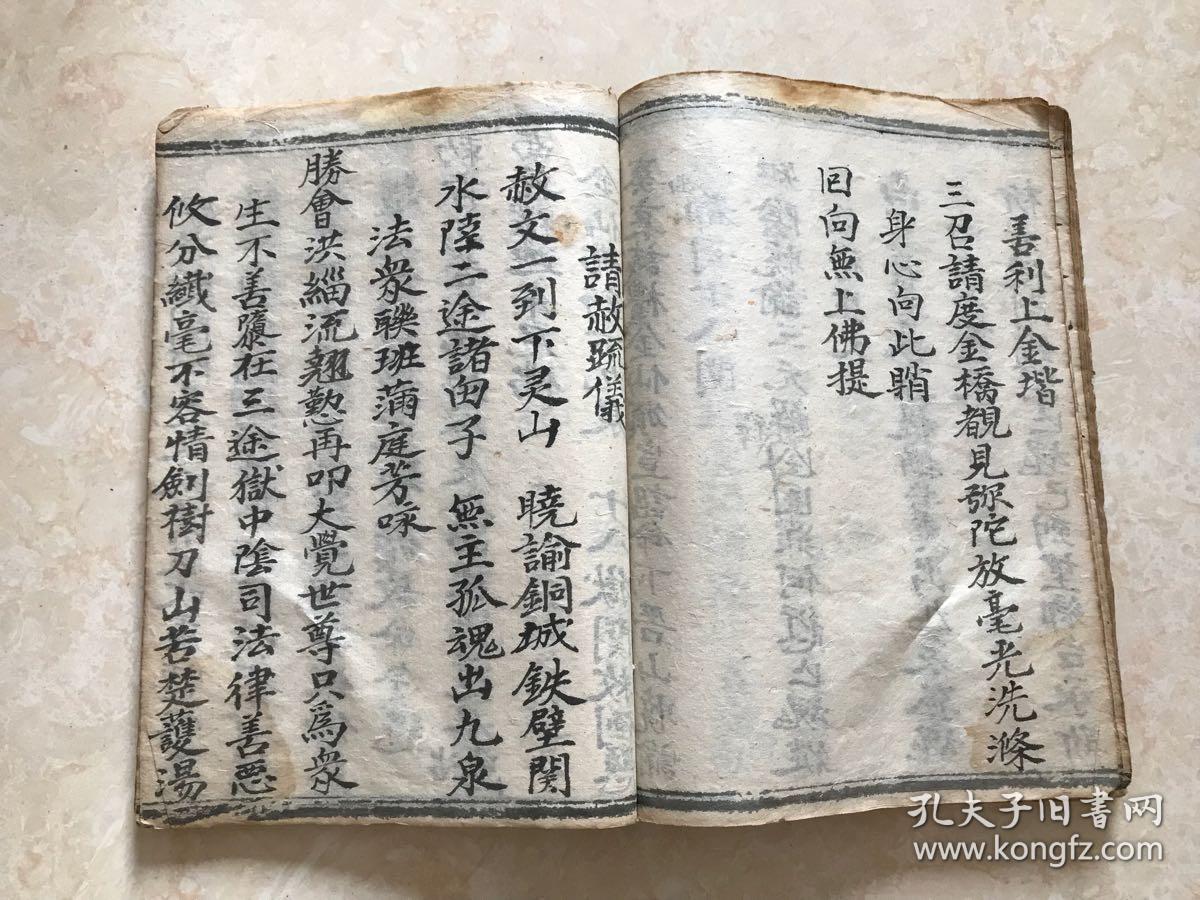 善利上金堦
三召請度金橋覩見弥陀放毫光洗滌
身心向此躋
回向無上佛提
請赦䟽儀
赦文一到下灵山 曉諭銅城鉄壁関
水陸二途諸甸子 無主孤魂出九泉
法衆聨班蒲庭芳咏
勝會洪緇流翹懃再叩大覺世尊只為衆
生不善隳在三途獄中陰司法律善惡
攸分纖毫不容情劍樹刀山苦楚護湯
孔夫子旧书网
www.kongfz.com